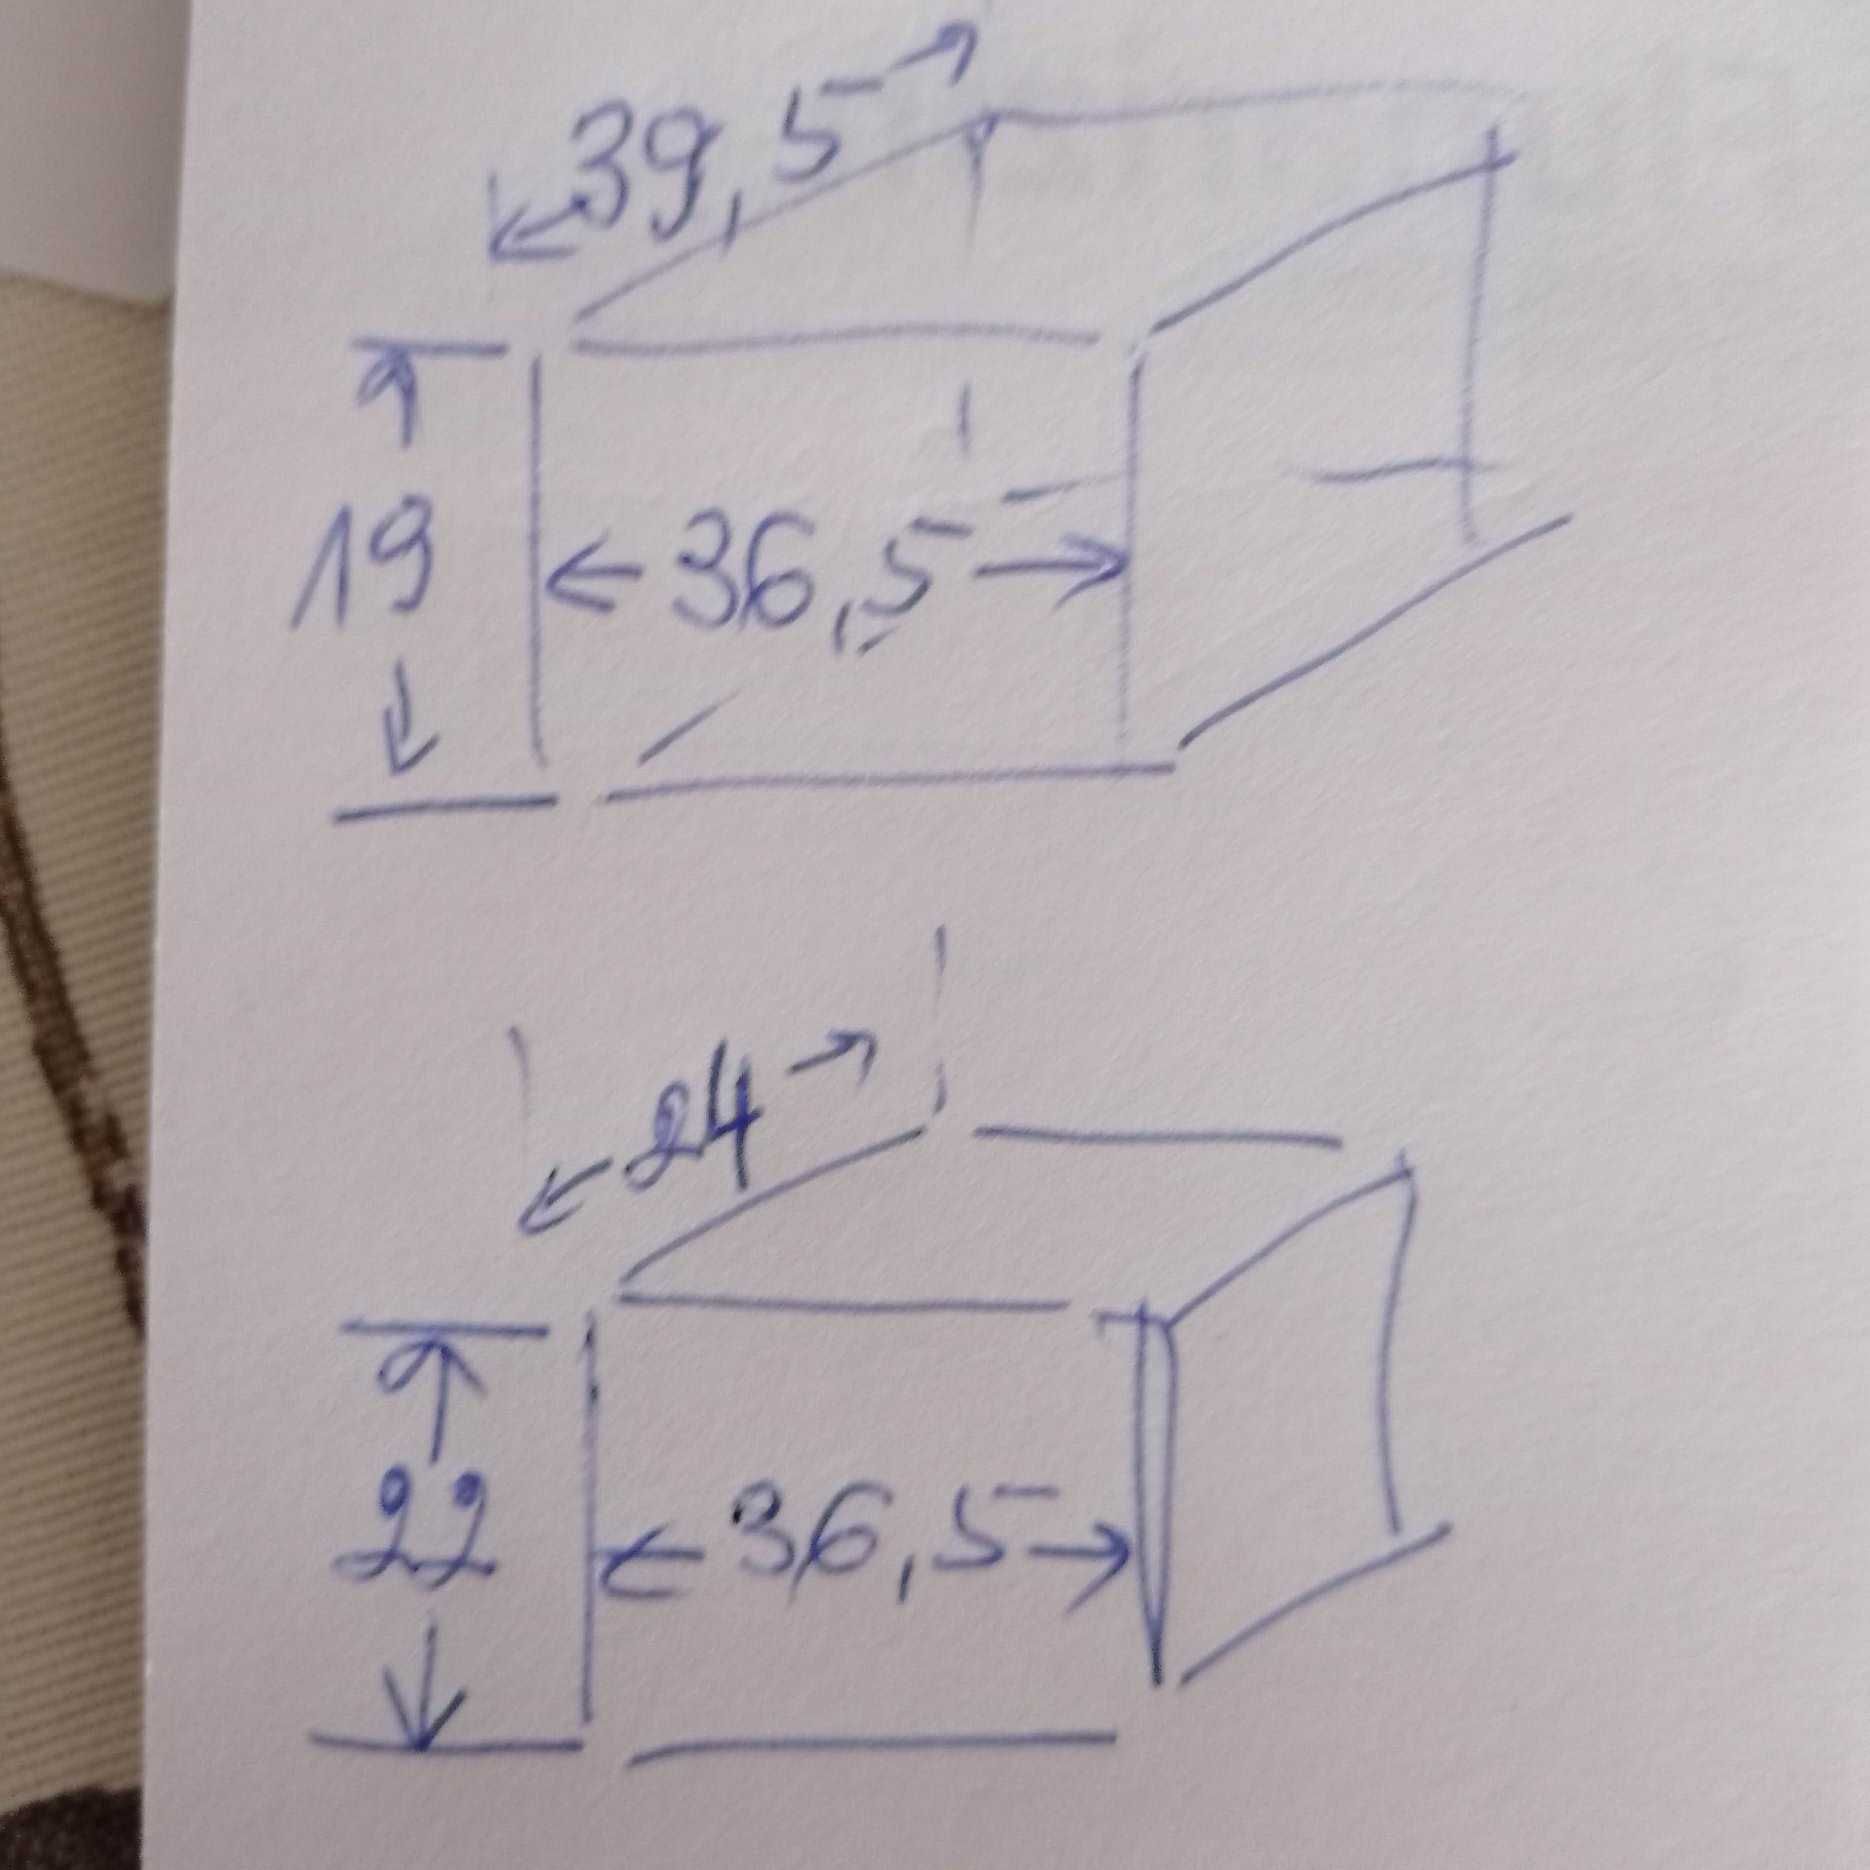 39,5
19
36,5
24
22
36,5